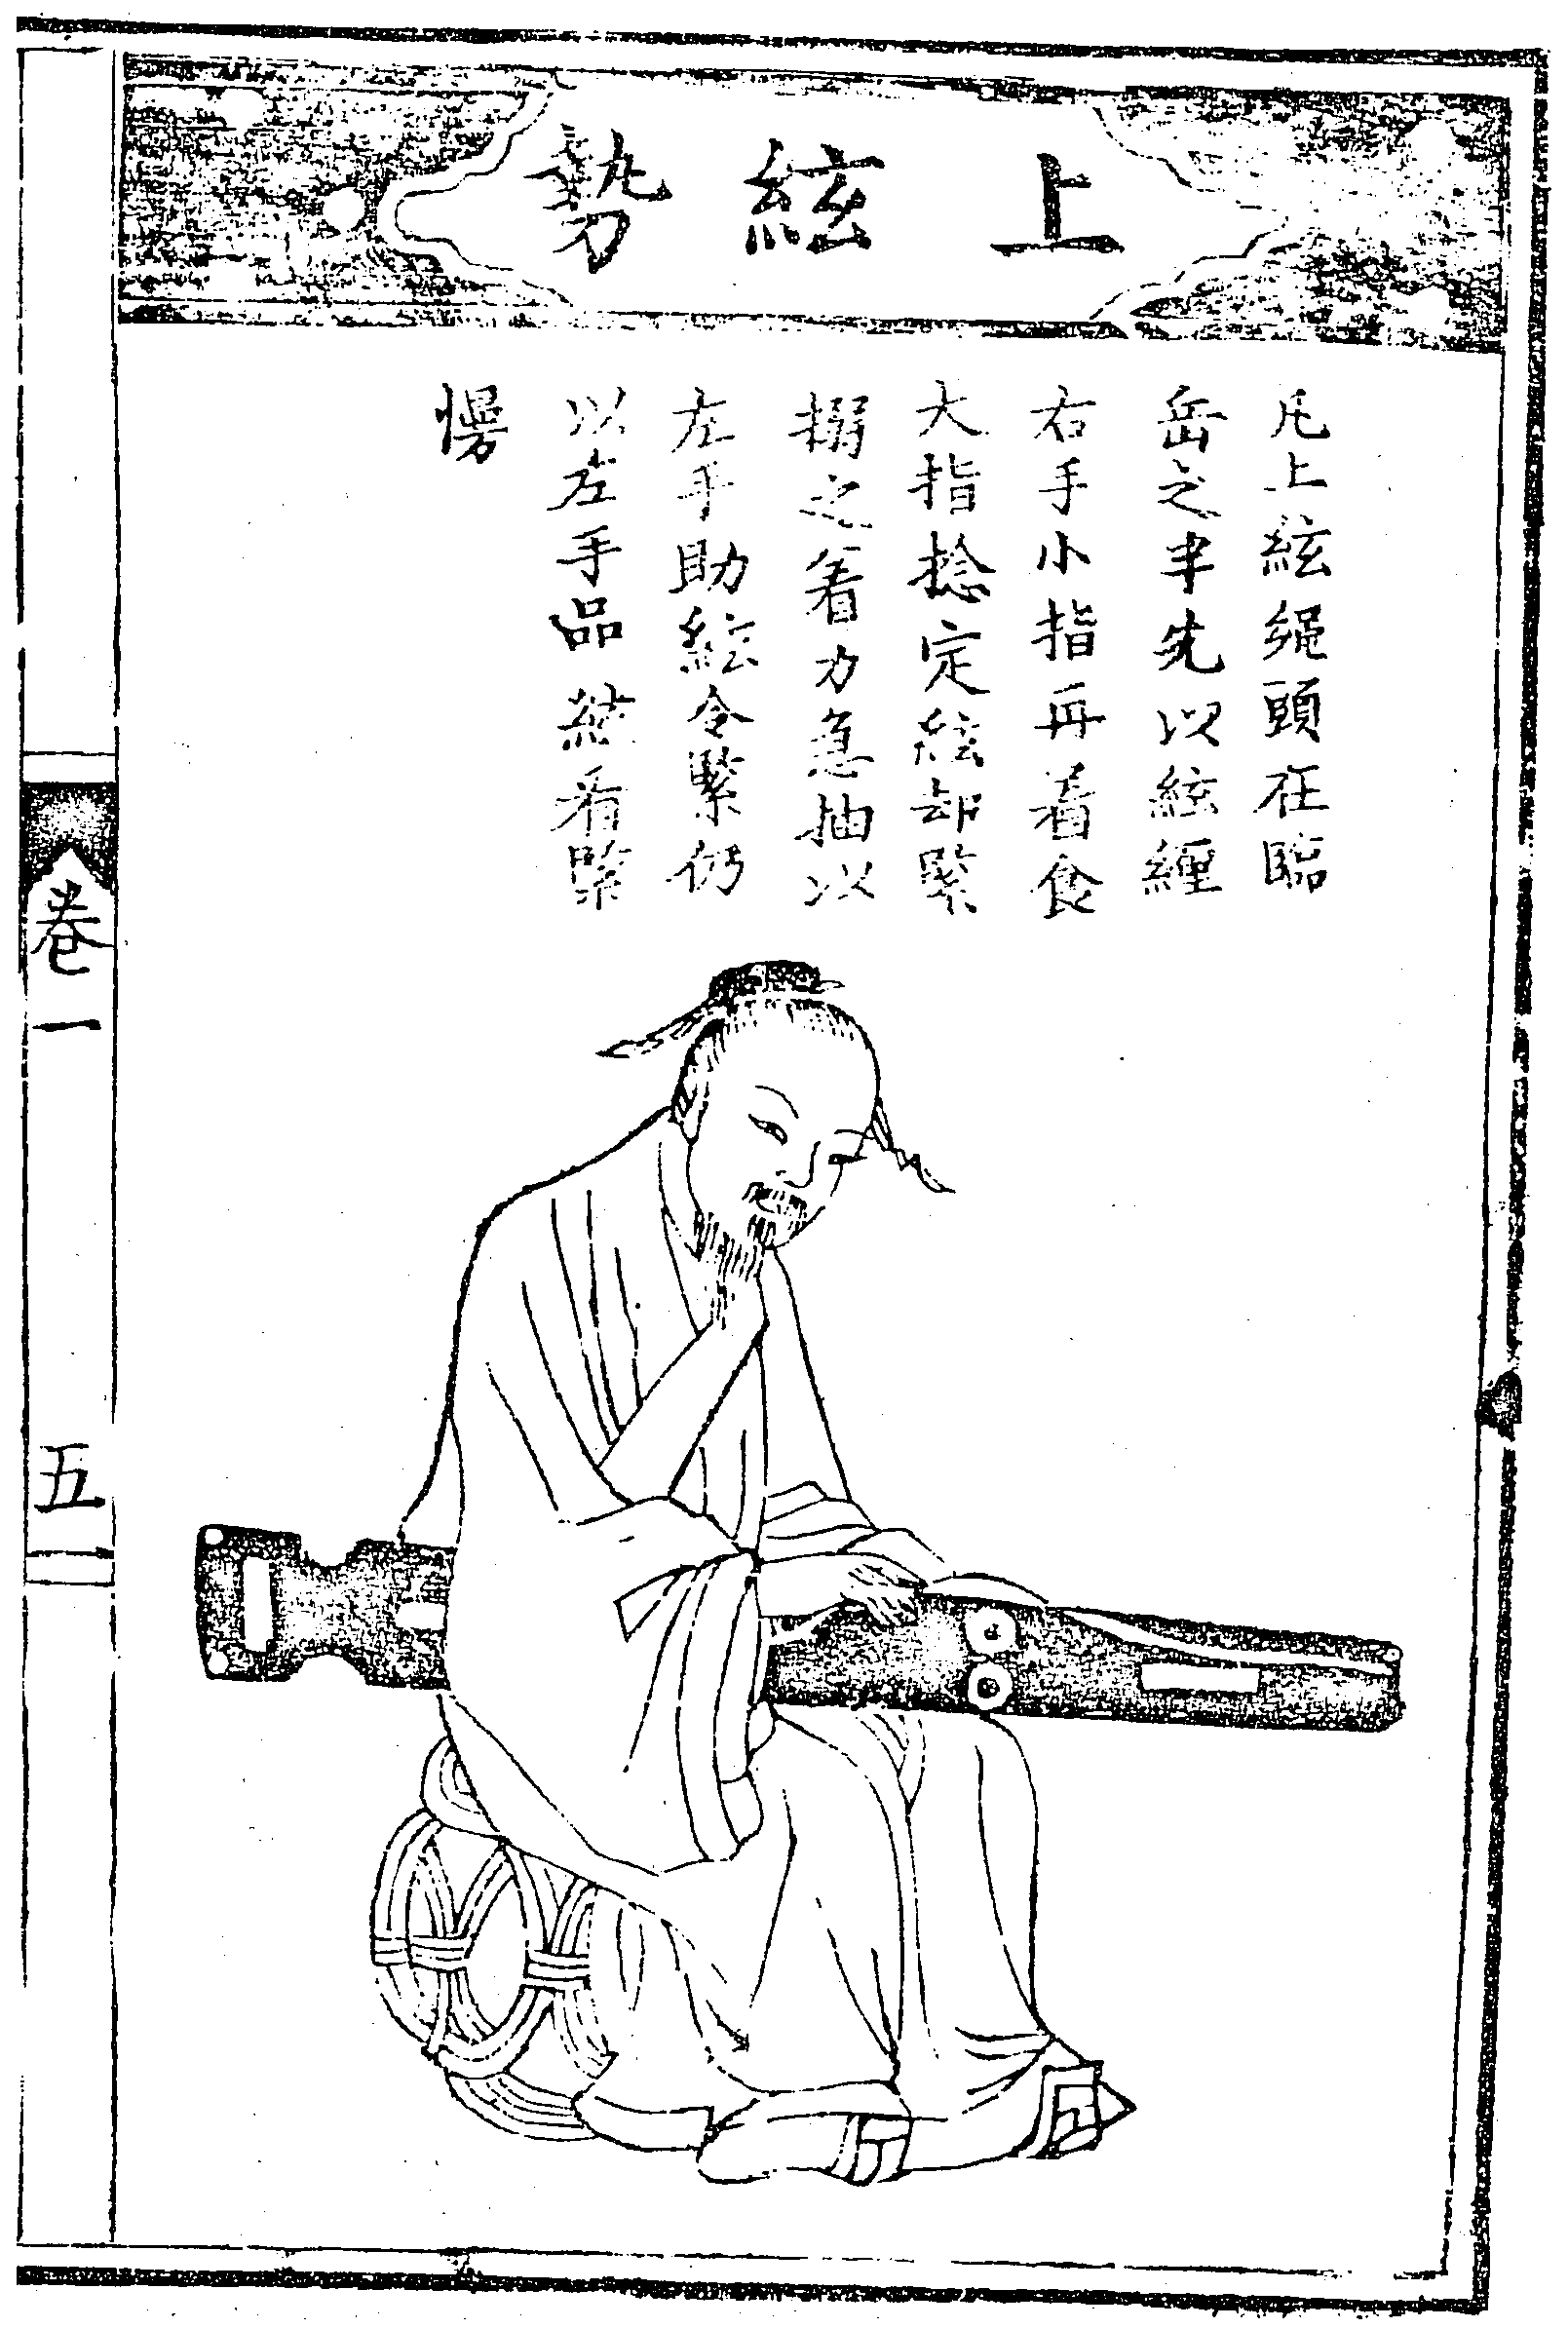 上絃勢
凡上絃繩頭在臨
岳之半先以絃纏
右手小指再着食
大指捻定絃却緊
搦之着力急抽以
左手助絃令緊仍
以左手品絃看緊
慢
卷一
五